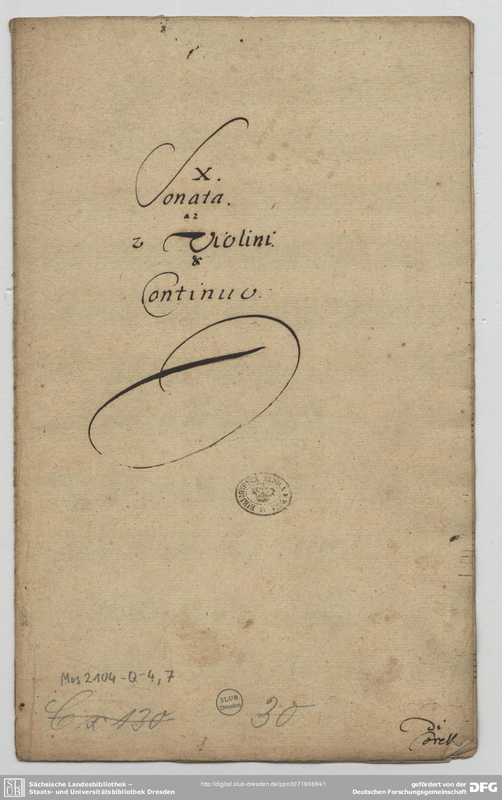 X.
Sonata.
a 2
2 Violini.
&
Continuo.
Mus 2104-Q-4,7
SLUB
Dresden
30
Di
Sächsische Landesbibliothek –
Staats- und Universitätsbibliothek Dresden
http://digital.slub-dresden.de/ppn307190684/1
gefördert von der
Deutschen Forschungsgemeinschaft
DFG